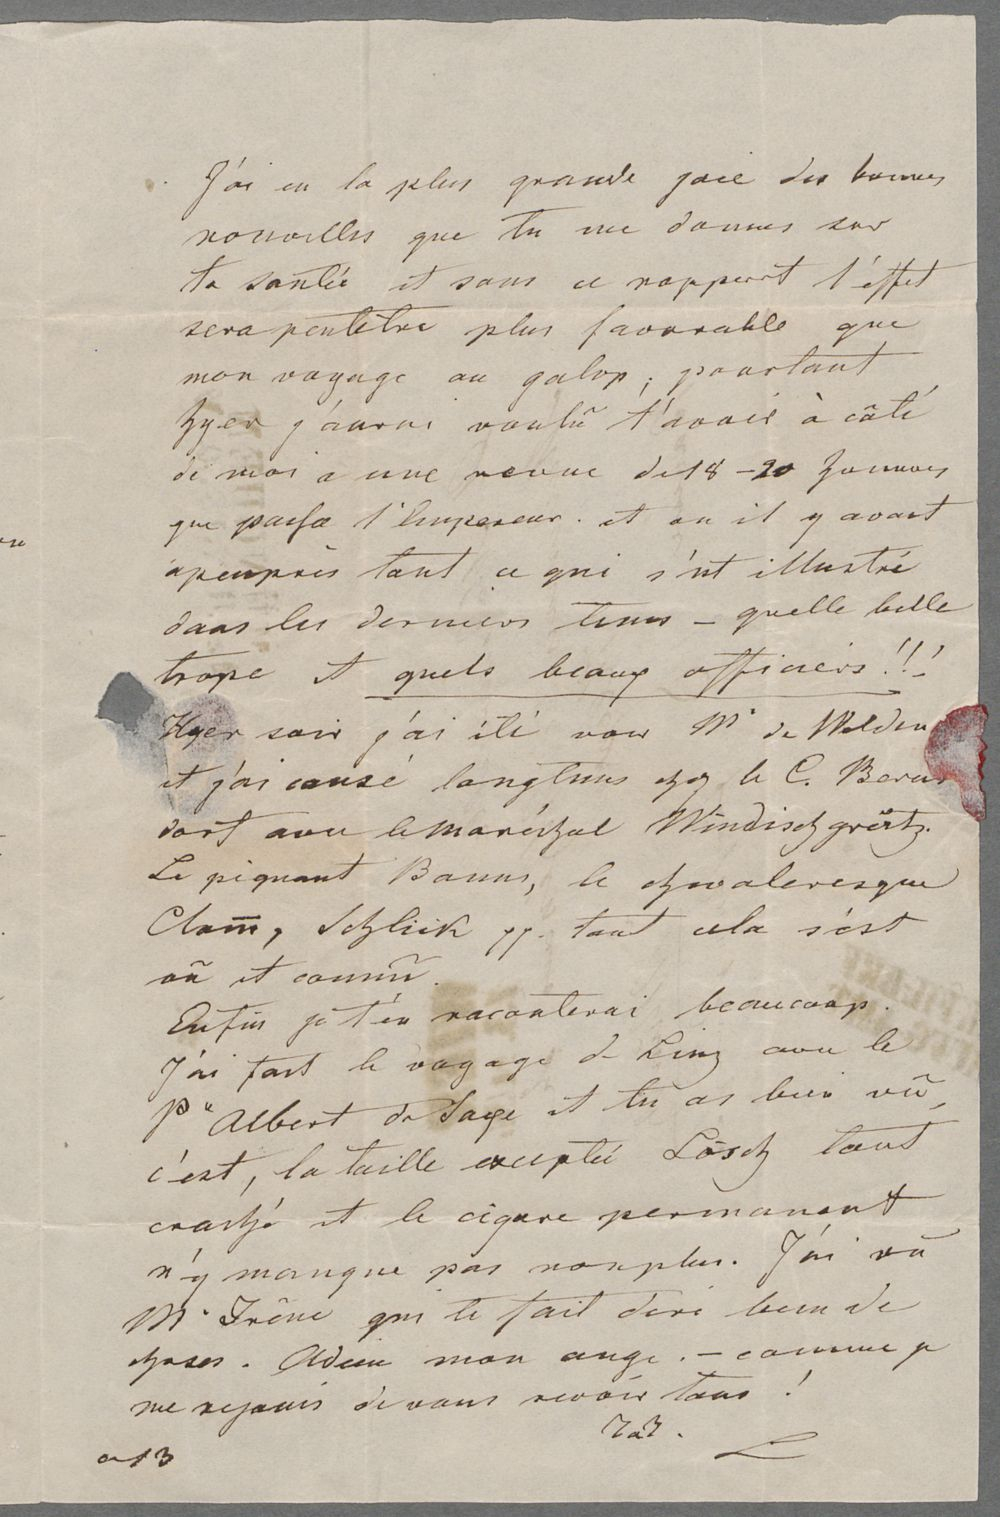 J'ai eu la plus grande joie des bonnes
nouvelles que tu me donnes sur
ta santée et sous ce rapport l'éffet
sera peutêtre plus favorable que
mon voyage au galop; pourtant
hyer j'aurai voulû t'avoir à côté
de moi a une revue de 18-20 hommes
que passa l'Empereur. et ou il y avait
apeuprès tout ce qui s'est illustré
dans les derniers tems - quelle belle
trope et quels beaux officiers!!!
Hyer soir j'ai été voir Mr de Welden
et j'ai causé longtems chez le C.
dorf avec le maréchal Windischgrätz.
Le piquant Banus, le chevaleresque
Clam̄, Schlick pp. tout cela s'est
vû et connû.
Enfin je t'en raconterai beaucoup.
J'ai fait le voyage de Linz avec le
Pce Albert de Saxe et tu as bien vû,
c'est, la taille exceptée Lösch tout
craché et le cigare permanent
n'y manque pas nonplus. J'ai vû
Me Irêne qui te fait dire bien de
choses. Adieu mon ange. - comme je
me rejouis de vous revoir tous!
L
a 13